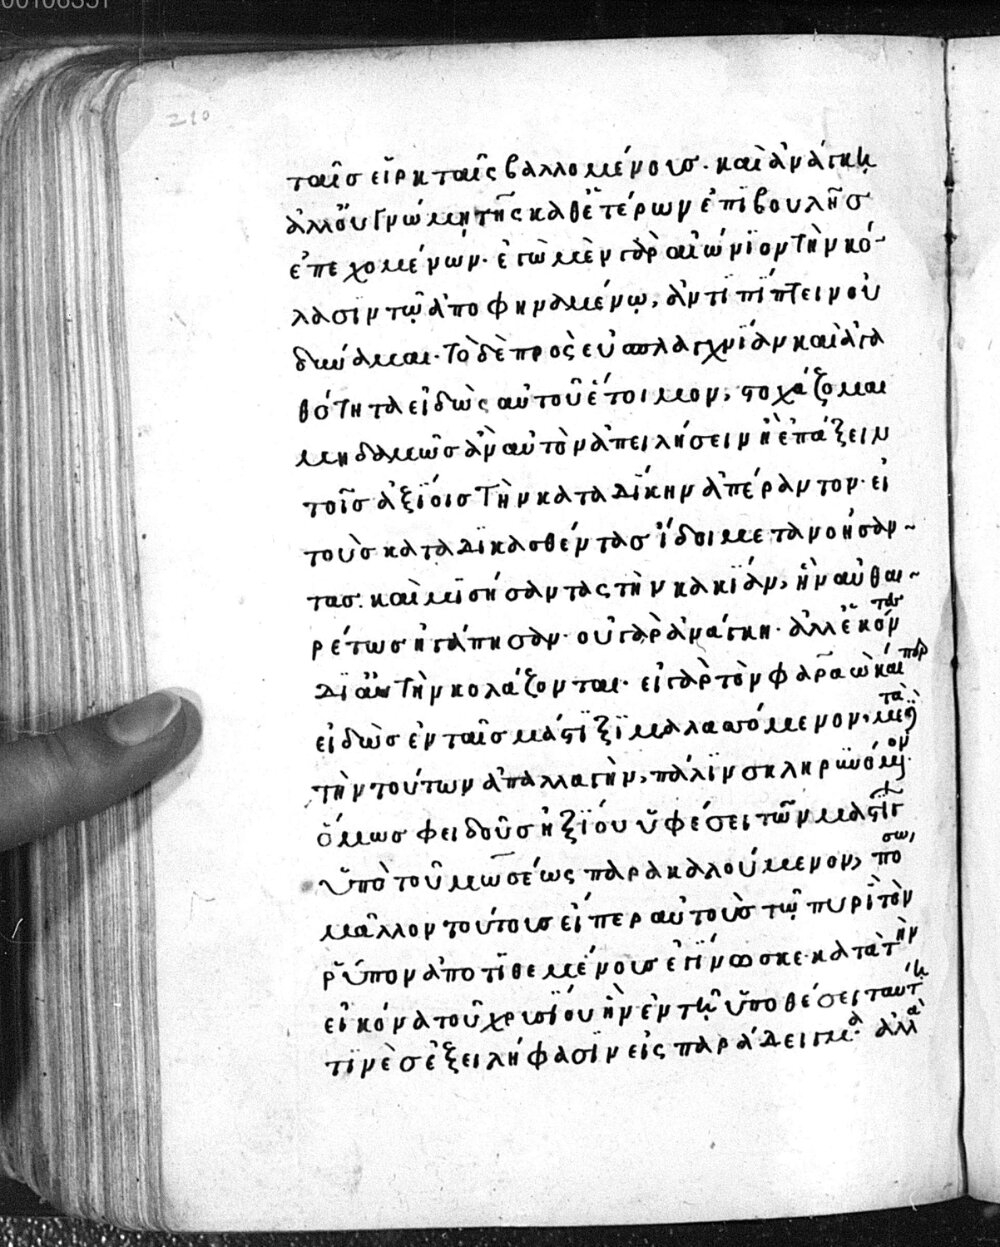 210
ταῖσ εἱρκταῖς βαλλομένους· καὶ ἀνάγκῃ
ἀλλ' οὐ γνώμῃ τῆς καθ' ἑτέρων ἐπιβουλῆσ
ἐπεχομένων· ἐγὼ μὲν γὰρ αἰώνϊον τὴν κό-
λασϊν τῷ ἀποφηναμένῳ, ἀντϊπΐπτειν οὐ
δύναμαι· τὸ δὲ πρὸς εὐσπλαγχνΐαν καὶ ἀγα
θότητα εἰδὼς αὐτοῦ ἕτοιμον, στοχάζομαι
μηδαμῶσ ἂν αὐτὸν ἀπειλήσειν ἢ ἐπάξειν
τοῖσ ἀξΐοισ τὴν καταδΐκην ἀπέραντον· εἰ
τοὺσ καταδϊκασθέντασ ἴδοι μετανοήσαν~
τασ. καὶ μϊσήσαντας τὴν κακΐαν, ἣν αὐθαι~
ρέτωσ ἠγάπησαν· οὐ γὰρ ἀνάγκη· ἀλλ' ἑκόντασ
δϊ' αὐτὴν κολάζονται· εἰ γὰρ τὸν φαραὼ καίπερ
εἰδὼσ ἐν ταῖσ μάστϊξϊ μαλασσόμενον, μετὰ
τὴν τούτων ἀπαλλαγὴν, πάλϊν σκληρϋνόμενον·
ὅμωσ φειδοῦσ ἠξΐου ὑφέσει τῶν μαστΐγ
ὑπὸ τοῦ μωσέως παρακαλούμενον, πόσω,
μᾶλλον τούτουσ εἴπερ αὐτοὺσ τῷ πυρὶ τὸν
ῥύπον ἀποτϊθεμένουσ ἐγΐνωσκε· κατὰ τὴν
εἰκόνα τοῦ χρυσΐου ἣν ἐν τῇ ὑποθέσει ταύτῃ
τϊνὲσ ἐξειλήφασϊν εἰς παράδειγμα· ἀλλὰ